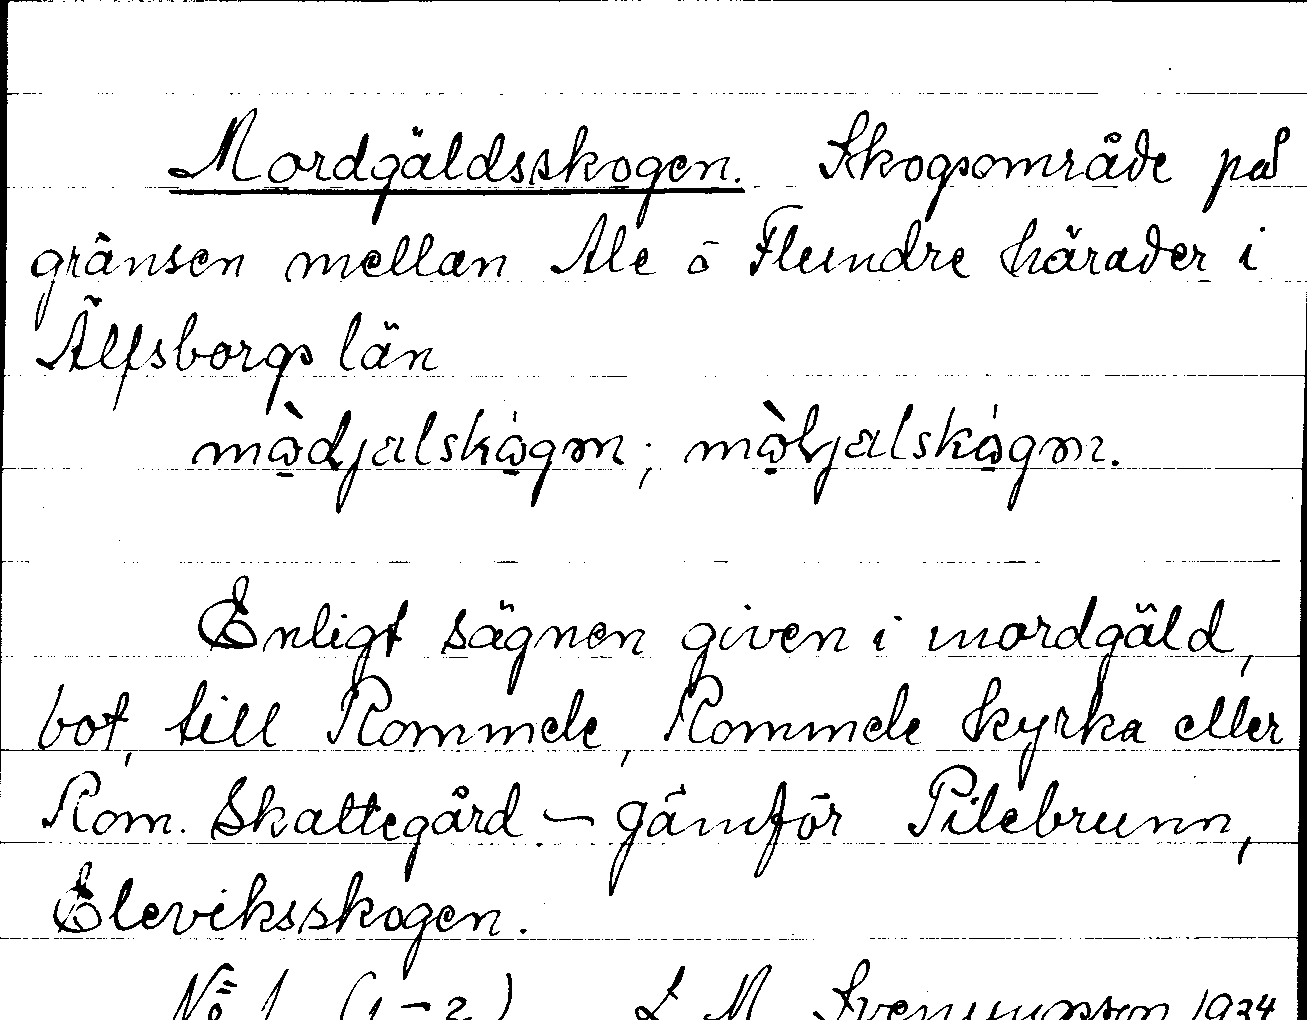 Mordgäldsskogen. Skogsområde på
gränsen mellan Ale o Flundre härader i
Älfsborgs län
mɷ̀djalskɷ́gm; mɷ̀ljalskɷ́gm.
Enligt sägnen given i mordgäld,
bot, till Rommele, Rommele kyrka eller
Rom. Skattegård – gämför Pilebrunn,
Eleviksskogen.
No 1 (1-2) L M Svenungsson 1934